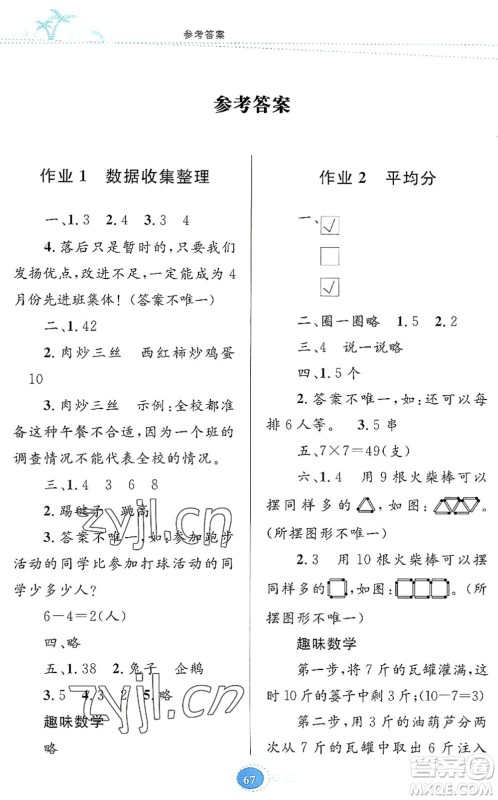 参考答案
参考答案
作业1 数据收集整理
一、1.3 2.4 3.3 4
4.落后只是暂时的,只要我们
发扬优点,改进不足,一定能成为4
月份先进班集体!(答案不唯一)
二、1.42
2.肉炒三丝 西红柿炒鸡蛋
10
3.肉炒三丝 示例:全校都准
备这种午餐不合适,因为一个班的
调查情况不能代表全校的情况。
三、1.4 3 6 8
2.踢毽子 跳高
3.答案不唯一,如:参加跑步
活动的同学比参加打球活动的同
学少多少人?
6-4=2(人)
四、略
五、1.38 2.兔子 企鹅
3.5 4.3 2 5.略
趣味数学
略
作业2 平均分
一、√
√
二、圈一圈略 1.5 2.2
三、4 说一说略
四、1.5个
2.答案不唯一,如:还可以每
排6人等。 3.5串
五、7×7=49(支)
六、1.4 用9根火柴棒可以
摆同样多的,如图:。
(所摆图形不唯一)
2.3 用10根火柴棒可以摆
同样多的,如图:。(所
摆图形不唯一)
趣味数学
第一步,将7斤的瓦罐灌满,这
时10斤的篓子中剩3斤;(10-7=3)
第二步,用3斤的油葫芦分两
次从7斤的瓦罐中取出6斤注入
67
zyjl.cn
zyjl.cn